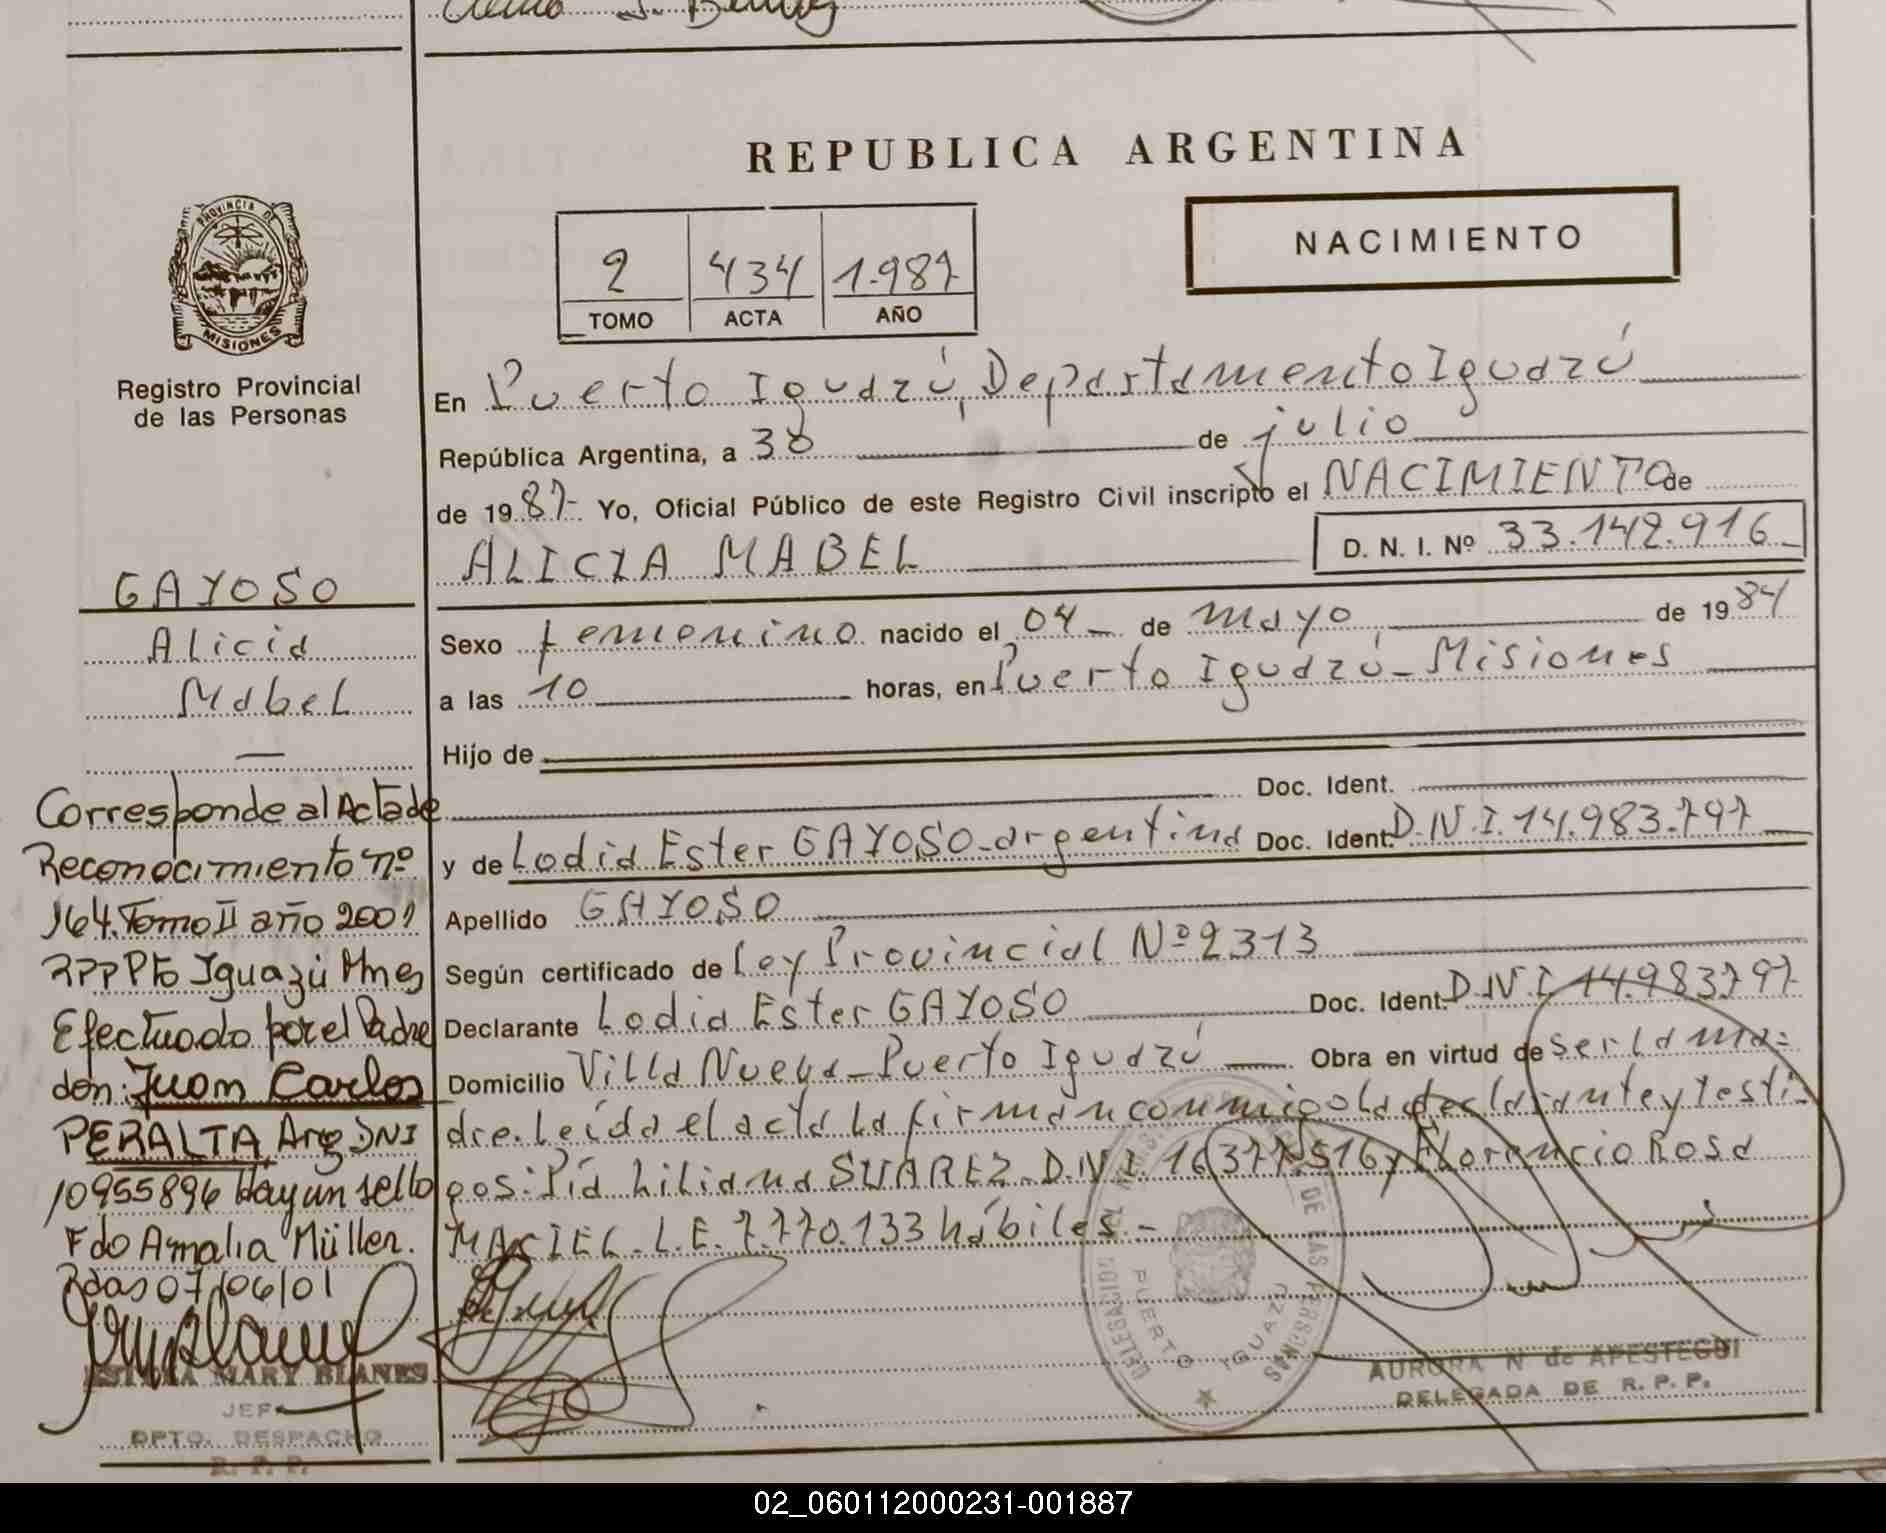 REPUBLICA ARGENTINA
NACIMIENTO
2 434 1.987
TOMO ACTA AÑO
PROVINCIA DE
MISIONES
Registro Provincial
de las Personas
GAYOSO
Alicia
Mabel
—
Corresponde al Acta de
Reconocimiento nº
164. Tomo II año 2001
RPP Pto Iguazú Mnes
Efectuado por el Padre
don: Juan Carlos
PERALTA Arg DNI
10955896 Hay un sello
Fdo Amalia Müller.
Pdas 07/06/01
MARY BLANES
JEF
DPTO. DESPACHO
R. P. P.
En Puerto Iguazú, Departamento Iguazú
República Argentina, a 30 de julio
de 1987- Yo, Oficial Público de este Registro Civil inscripto el NACIMIENTO de
ALICIA MABEL D. N. I. Nº 33.142.916
Sexo femenino nacido el 04 de mayo, de 1984
a las 10 horas, en Puerto Iguazú - Misiones
Hijo de
Doc. Ident.
y de Lodia Ester GAYOSO - argentina Doc. Ident. D.N.I. 14.983.797
Apellido GAYOSO
Según certificado de Ley Provincial Nº 2313
Declarante Lodia Ester GAYOSO Doc. Ident. D.N.I. 14.983.797
Domicilio Villa Nueva - Puerto Iguazú Obra en virtud de ser la ma=
dre. Leída el acta la firman conmigo la declarante y testi-
gos: Pía Liliana SUAREZ - D.N.I. 16.377.516 y Florencio Rosa
MACIEL - L.E. 7.770.133 hábiles. -
DE LAS PERSONAS
PUERTO IGUAZU
AURORA N de APESTEGUI
DELEGADA DE R. P. P.
02_060112000231-001887